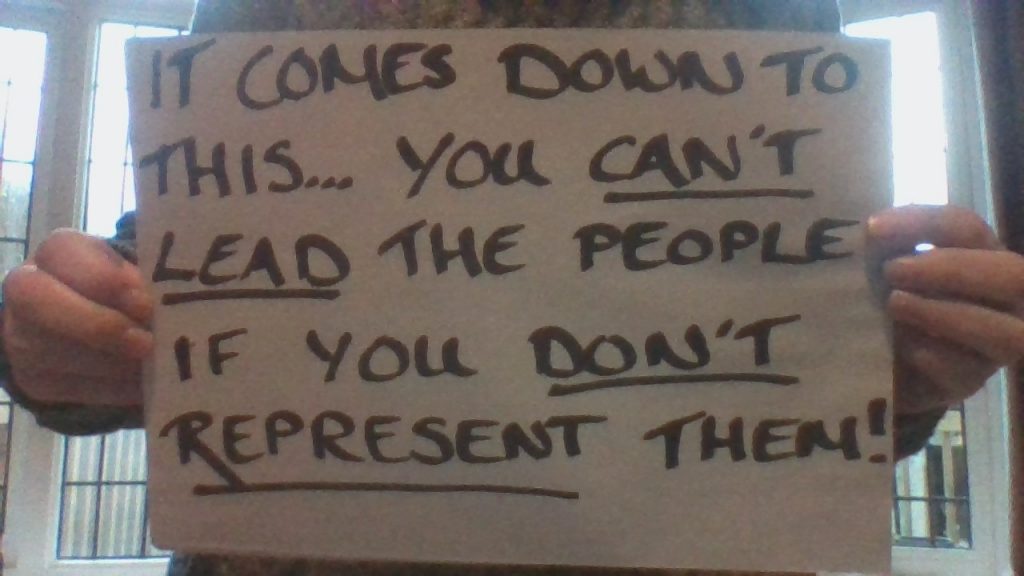 IT COMES DOWN TO
THIS... YOU CAN'T
LEAD THE PEOPLE
IF YOU DON'T
REPRESENT THEM!